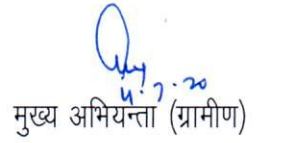 4.7.20
मुख्य अभियन्ता (ग्रामीण)